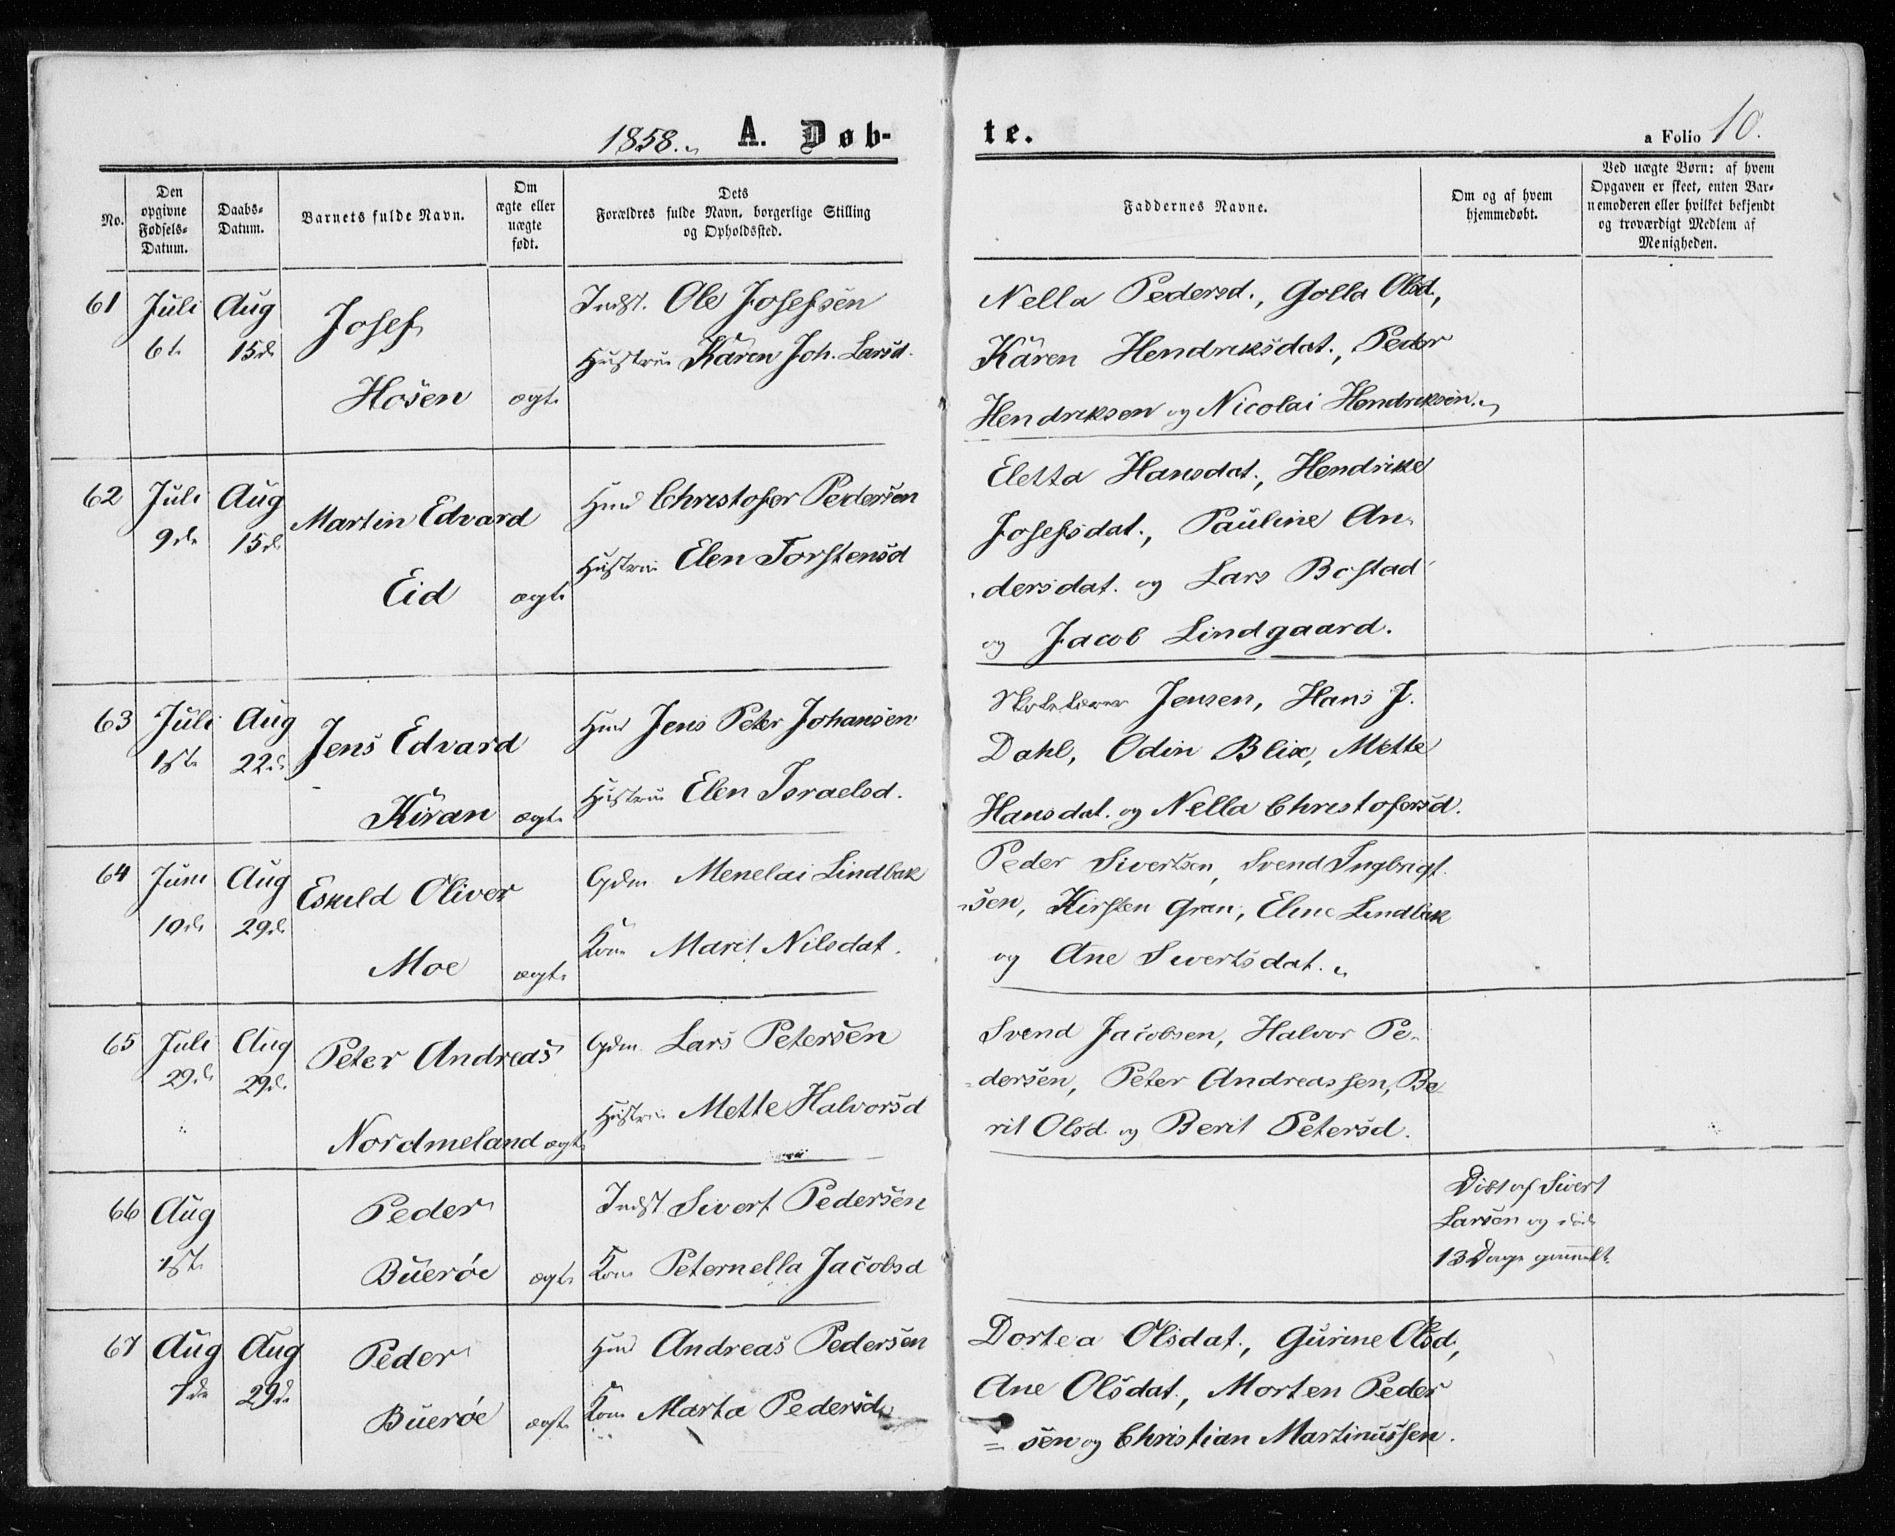 1858. A. Døb-
te.
a Folio 10.
No.
Den opgivne Fødsels-Datum.
Daabs-Datum.
Barnets fulde Navn.
Om ægte eller uægte født.
Dets Forældres fulde Navn, borgerlige Stilling og Opholdssted.
Faddernes Navne.
Om og af hvem hjemmedøbt.
Ved uægte Børn: af hvem Opgaven er skeet, enten Barnemoderen eller hvilket bekjendt og troværdigt Medlem af Menigheden.
61 Juli 6te Aug 15de Josef
Hosen ægte
Indst. Ole Josefsen
Hustrue Karen Joh. Larsd.
Nella Pedersd., Golla Olsd.,
Karen Hendriksdat., Peder
Hendriksen og Nicolai Hendriksen.
62 Juli 9de Aug 15de Martin Edvard
Eid ægte
Hmd Christofer Pedersen
Hustrue Elen Torstensd
Eletta Hansdat., Hendrikke
Josefsdat., Pauline An-
dersdat. og Lars Bostad
og Jacob Lindgaard.
63 Juli 1ste Aug 22de Jens Edvard
Kiran ægte
Hmd Jens Peter Johansen
Hustrue Elen Israelsd.
Skolelærer Jensen, Hans J.
Dahl, Odin Blix, Mette
Hansdat. og Nella Christofersd.
64 Juni 10de Aug 29de Eskild Oliver
Moe ægte
Gdm Menelai Lindbak
Kone Marit Nilsdat.
Peder Sivertsen, Svend Ingbrigt-
sen, Kirsten Gran, Eline Lindbak
og Ane Sivertsdat.
65 Juli 29de Aug 29de Peter Andreas
Nordmeland ægte
Gdm. Lars Petersen
Hustrue Mette Halvorsd
Svend Jacobsen, Halvor Pe-
dersen, Peter Andreassen, Be-
rit Olsd. og Berit Petersd.
66 Aug 1ste Peder
Buerøe ægte
Indst Sivert Pedersen
Kone Peternella Jacobsd
Døbt af Sivert
Larsen og døde
13 Dage gammelt.
67 Aug 7de Aug 29de Peder
Buerøe ægte
Hmd Andreas Pedersen
Kone Marta Pedersd.
Dortea Olsdat., Gurine Olsd.,
Ane Olsdat., Morten Peder
=sen og Christian Martinussen.